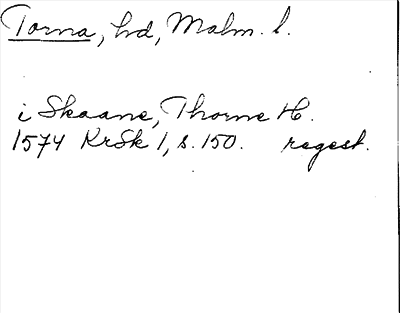 Torna, hd, Malm. l.
i Skaane, Thorne H.
1574 KrSk 1, s. 150. regest.